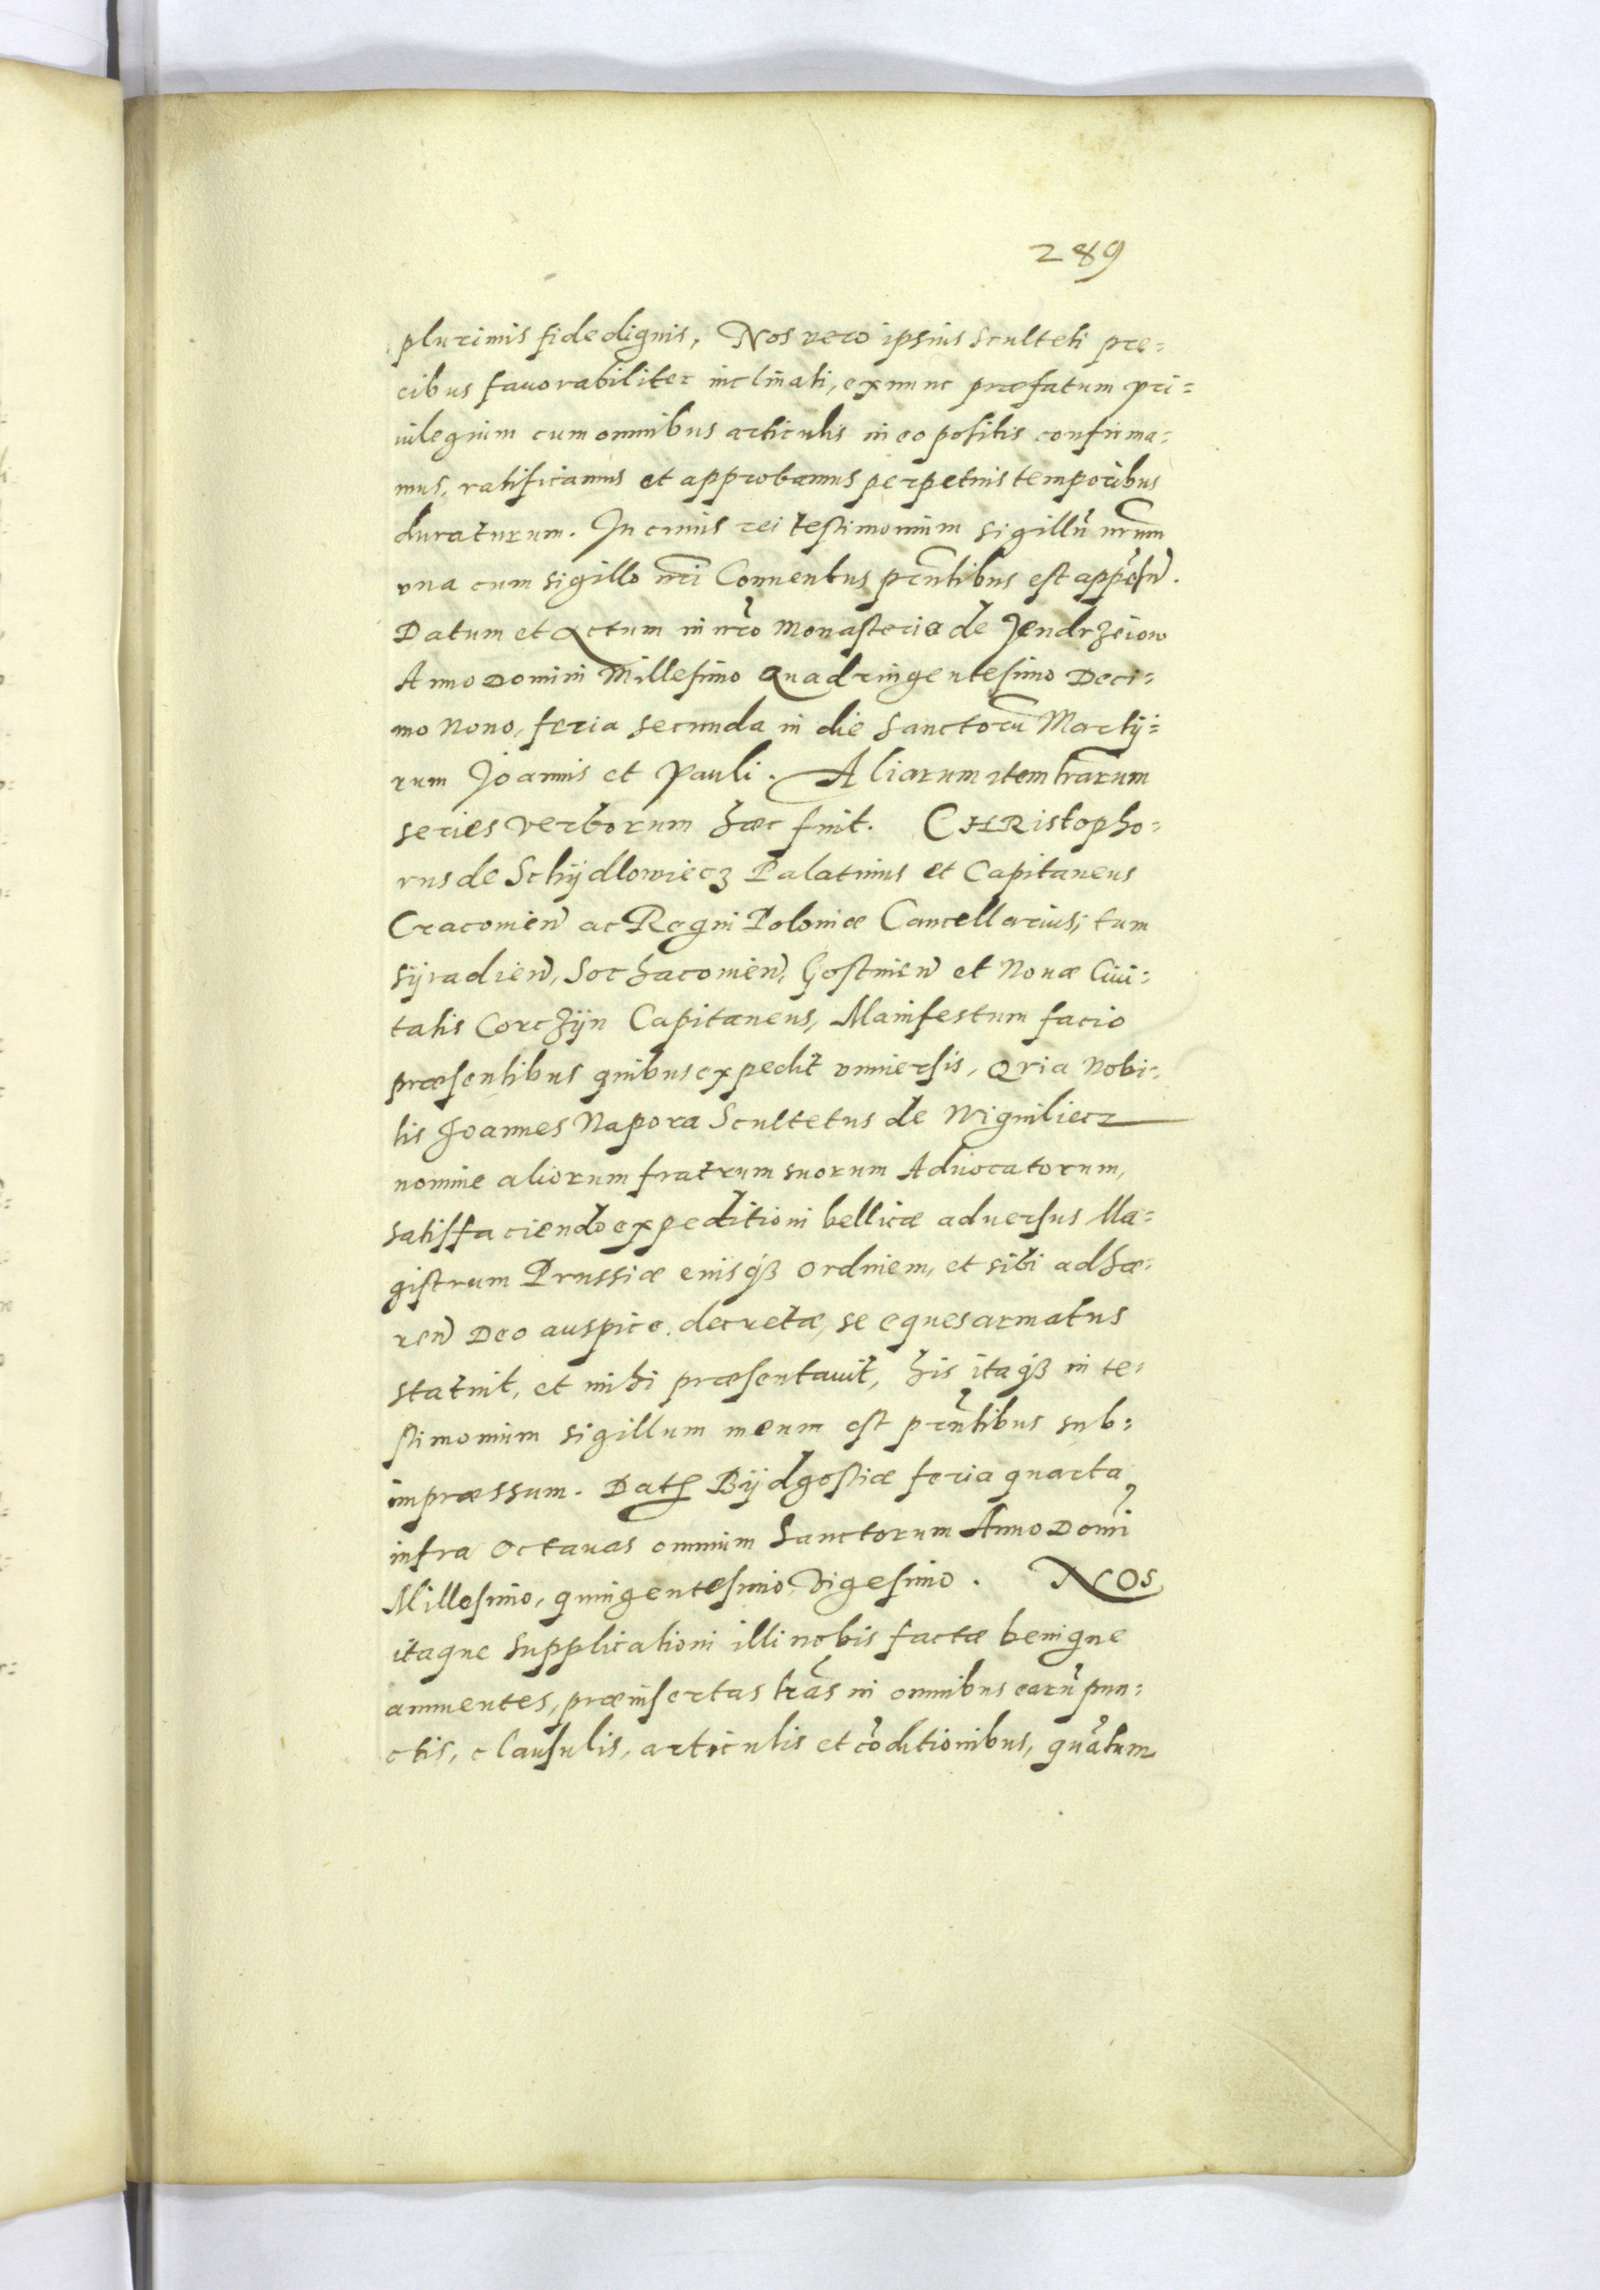 289
plurimis fidedignis, Nos vero ipsius Sculteti pre=
cibus fauorabiliter inclinati, exnunc præfatum pri=
uilegium cum omnibus articulis in eo positis confirma=
mus, ratificamus et approbamus perpetuis temporibus
duraturum. In cuius rei testimonium sigillũ nrũm
vna cum sigillo nr̃i Conuentus prñtibus est appẽsũ.
Datum et Actum in nr̃o Monasterio de Jendrzeiow
Anno Domini Millesimo Quadringentesimo Deci=
mo Nono, feria secunda in die Sanctorũ Martij=
rum Joannis et Pauli. Aliarum item lr̃arum
series verborum hæc fuit. CHRistopho=
rus de Schijdlowiecz Palatinus et Capitaneus
Cracouieñ ac Regni Poloniæ Cancellarius, tum
Sijradieñ, Sochacouieñ, Gostinieñ et Nouæ Ciui=
tatis Corczijn Capitaneus, Manifestum facio
præsentibus quibus expedit vniuersis, Qria Nobi=
lis Joannes Napora Scultetus de Wigniliecz
nomine aliorum fratrum suorum Aduocatorum,
satisfaciendo expeditioni bellicæ aduersus Ma=
gistrum Prussiæ eiusqȝ Ordinem, et sibi adhæ=
reñ Deo auspice decretæ, se eques armatus
statuit, et mihi præsentauit, his itaqȝ in te=
stimonium sigillum meum est prñtibus sub=
impræssum. Dat Bijdgostiæ feria quarta
infra Octauas omnium Sanctorum Anno Domĩ
Millesimo, quingentesimo Vigesimo. NOS
itaque Supplicationi illi nobis factæ benigne
annuentes, præinsertas lr̃as in omnibus earũ pun=
ctis, clausulis, articulis et cõditionibus, quãtum